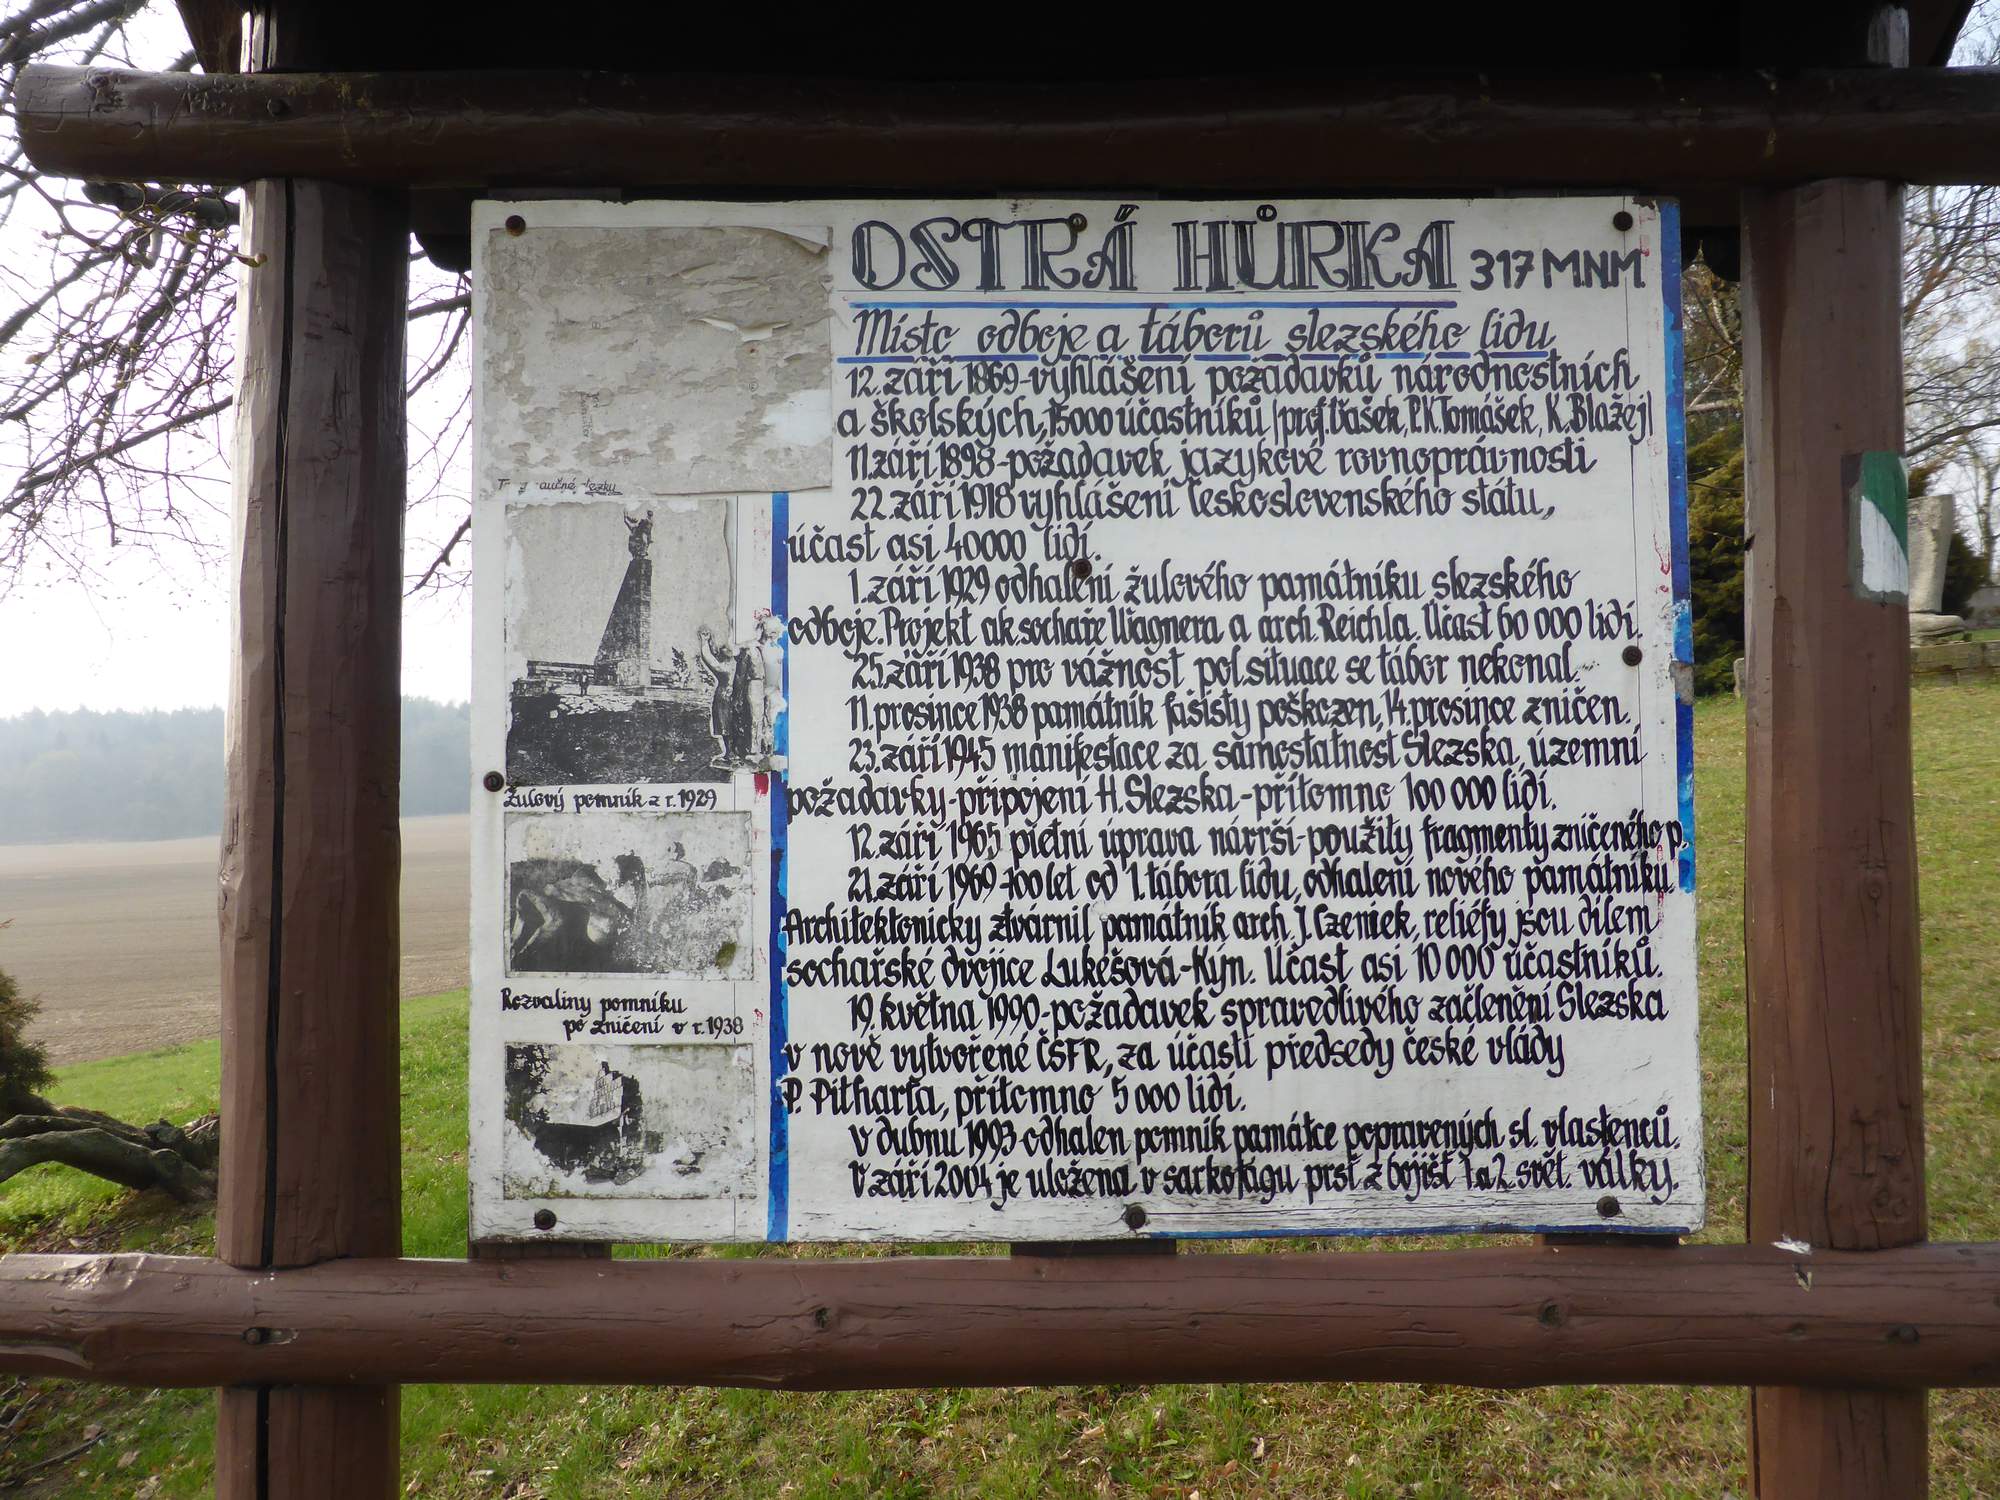 OSTRÁ HŮRKA 317 M.N.M.
Místo odboje a táborů slezského lidu
12. září 1869-vyhlášení požadavků národnostních
a školských, 15000 účastníků /prof. Vašek, P. K. Tomášek, K. Blažej/
11. září 1898-požadavek jazykové rovnoprávnosti
22. září 1918 vyhlášení Československého státu,
účast asi 40000 lidí.
1. září 1929 odhalení žulového památníku slezského
odboje. Projekt ak. sochaře Wagnera a arch. Reichla. Účast 60 000 lidí.
25. září 1938 pro vážnost pol. situace se tábor nekonal.
11. prosince 1938 památník fašisty poškozen, 14. prosince zničen.
23. září 1945 manifestace za samostatnost Slezska, územní
požadavky-připojení H. Slezska-přítomno 100 000 lidí.
12. září 1965 pietní úprava návrší-použity fragmenty zničeného p.
21. září 1969-100 let od 1. tábora lidu, odhalení nového památníku.
Architektonicky ztvárnil památník arch. J. Czeniek, reliéfy jsou dílem
sochařské dvojice Lukešová-Kýn. Účast asi 10 000 účastníků.
19. května 1990-požadavek spravedlivého začlenění Slezska
v nově vytvořené ČSFR, za účasti předsedy české vlády
P. Pitharta, přítomno 5 000 lidí.
v dubnu 1993 odhalen pomník památce popravených sl. vlastenců.
V září 2004 je uložena v sarkofágu prsť z bojišť 1. a 2. svět. války.
Žulový pomník z r. 1929
Rozvaliny pomníku
po zničení v r. 1938